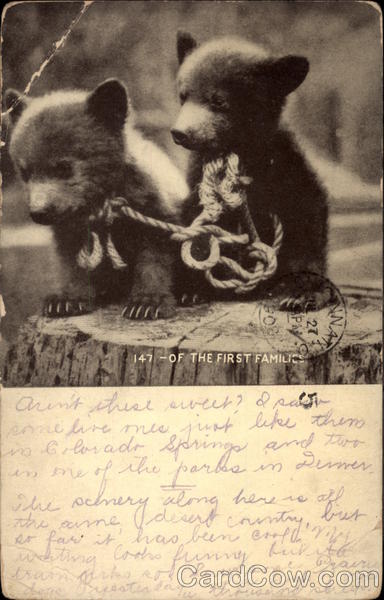 147 - OF THE FIRST FAMILIES
5
Aren't these sweet? I saw
some live ones just like them
in Colorado Springs and two
in one of the parks in Denver.
The scenery along here is all
the same, desert country, but
so far it has been cool. My
writing looks funny but the
train jerks so.
yesterday
CardCow.com
CardCow.com